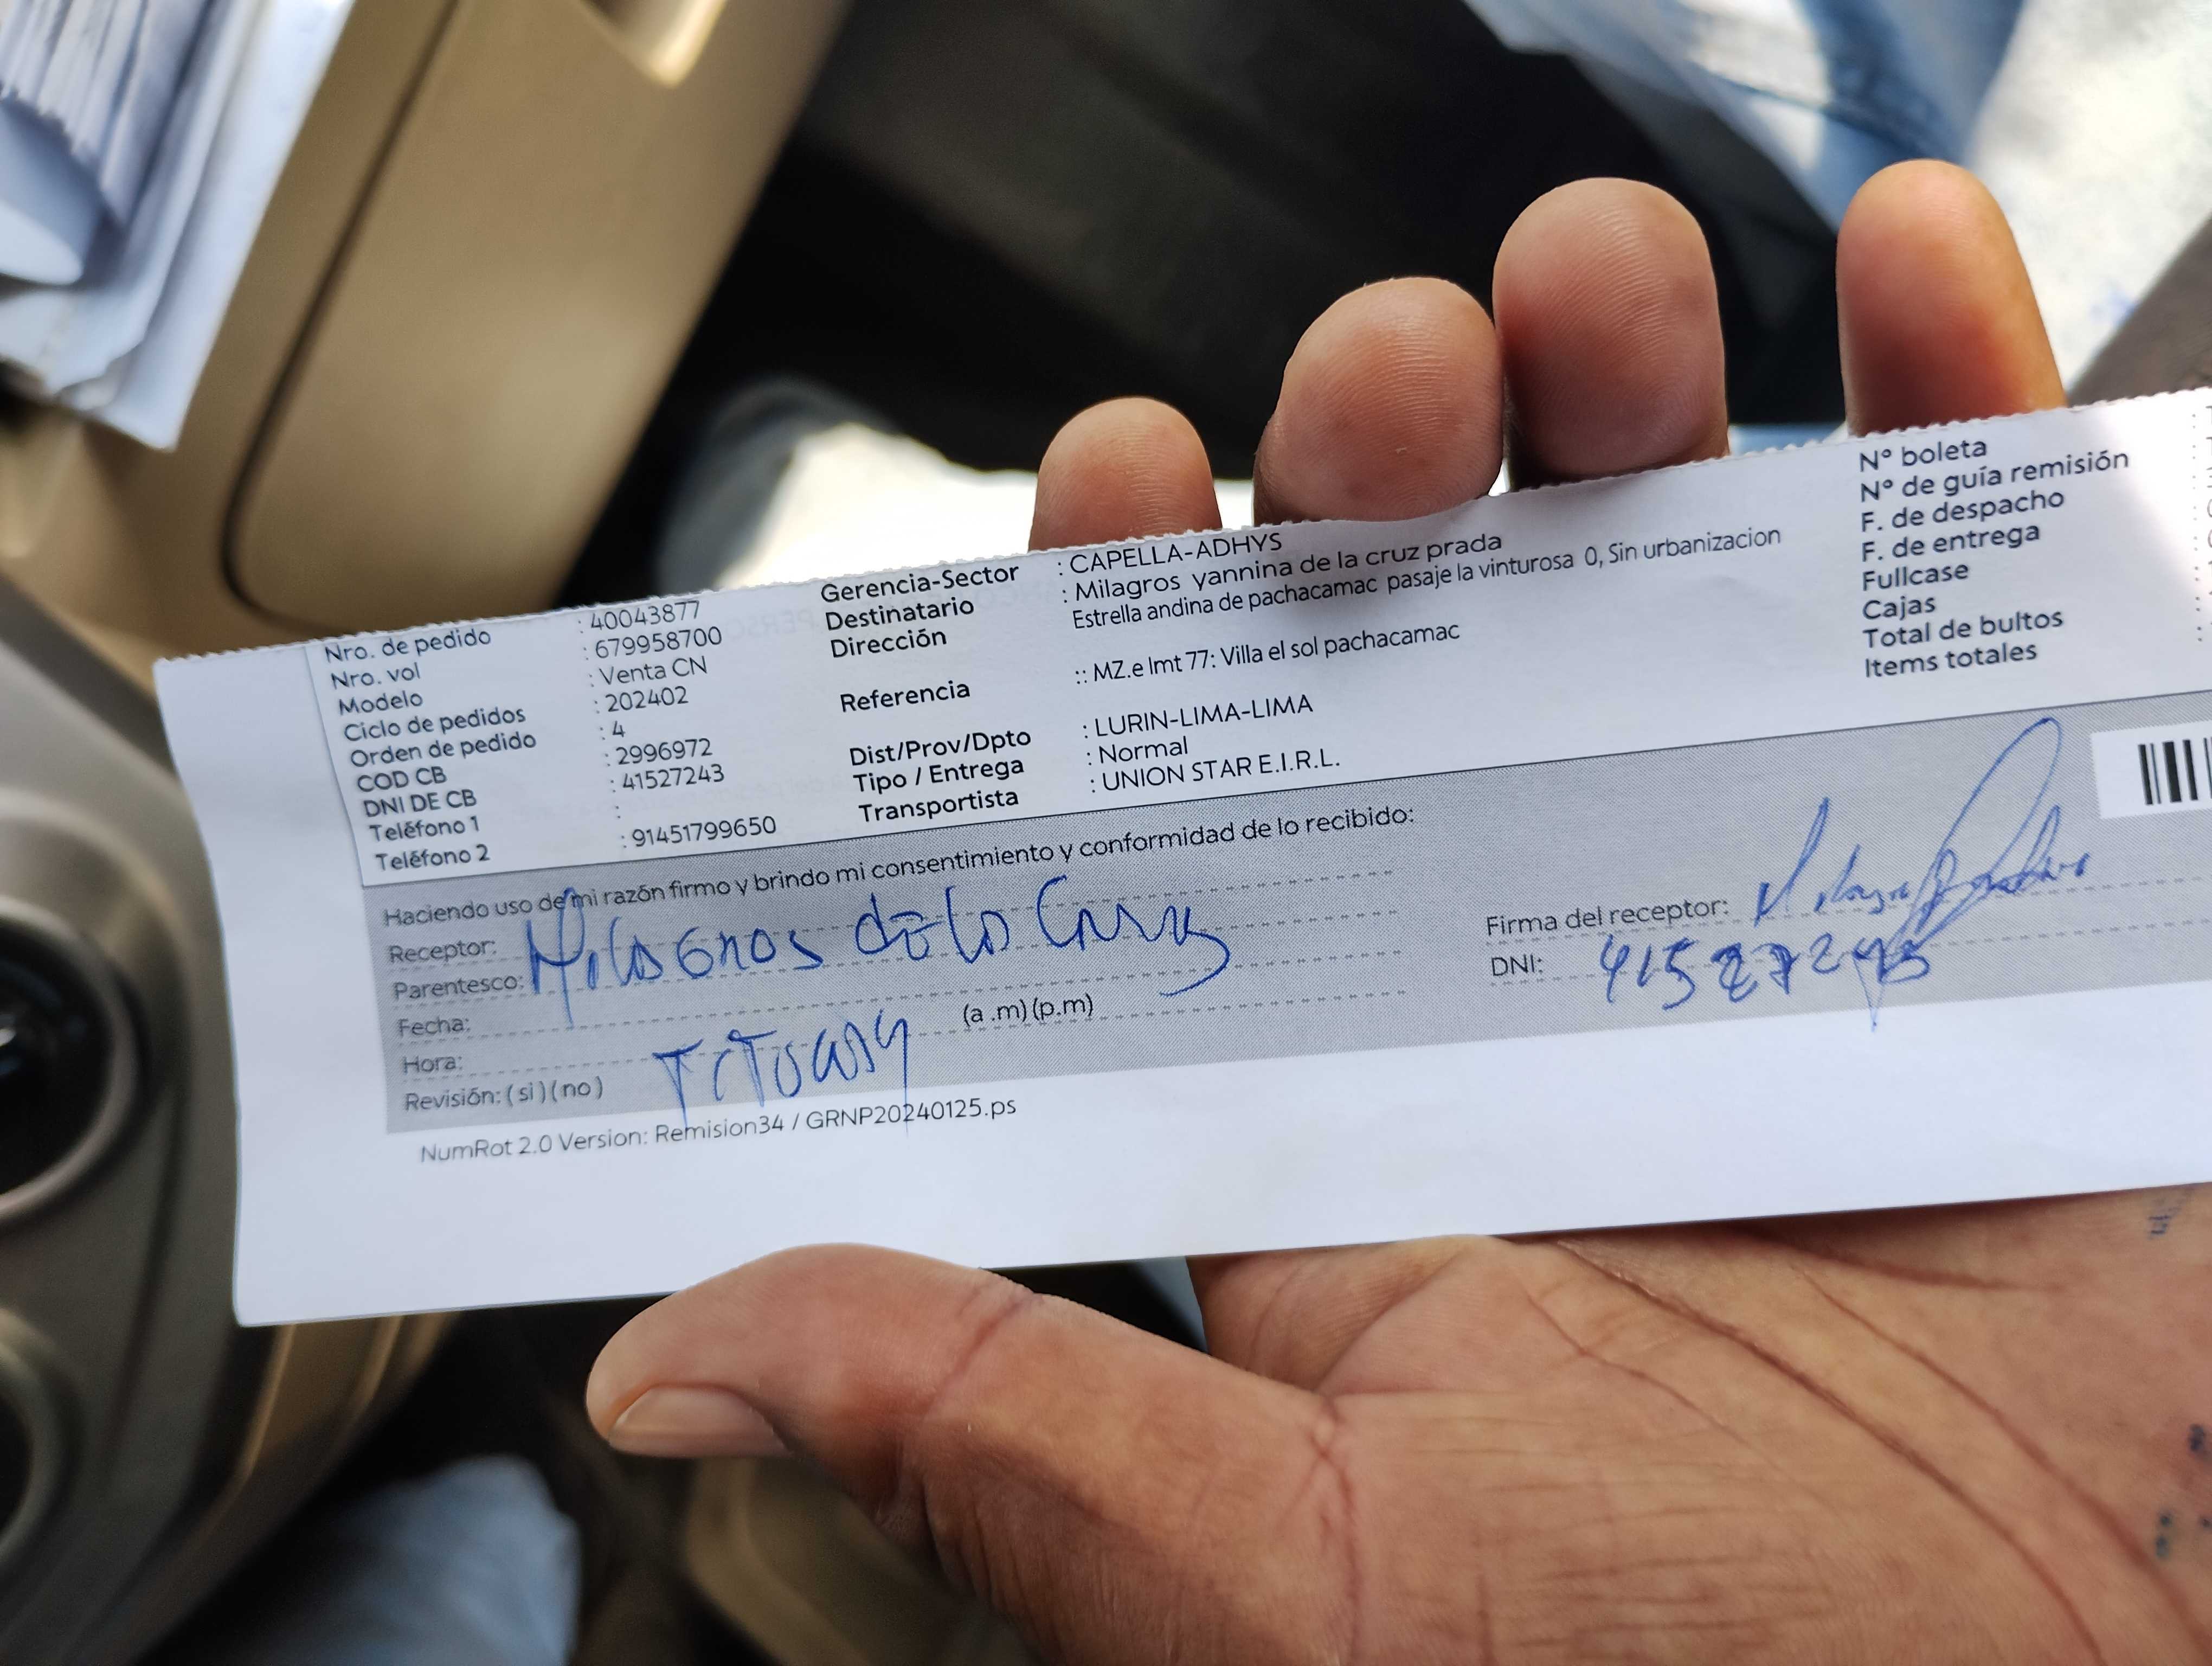 Nro. de pedido : 40043877
Nro. vol : 679958700
Modelo : Venta CN
Ciclo de pedidos : 202402
Orden de pedido : 4
COD CB : 2996972
DNI DE CB : 41527243
Teléfono 1 :
Teléfono 2 : 91451799650
Gerencia-Sector : CAPELLA-ADHYS
Destinatario : Milagros yannina de la cruz prada
Dirección Estrella andina de pachacamac pasaje la vinturosa 0, Sin urbanizacion
Referencia :: MZ.e lmt 77: Villa el sol pachacamac
Dist/Prov/Dpto : LURIN-LIMA-LIMA
Tipo / Entrega : Normal
Transportista : UNION STAR E.I.R.L.
Nº boleta
Nº de guía remisión
F. de despacho
F. de entrega
Fullcase
Cajas
Total de bultos
Items totales
Haciendo uso de mi razón firmo y brindo mi consentimiento y conformidad de lo recibido:
Receptor: Milagros de la Cruz
Parentesco:
Fecha:
Hora: (a .m) (p.m)
Revisión: ( si ) ( no )
Firma del receptor:
DNI: 41527243
NumRot 2.0 Version: Remision34 / GRNP20240125.ps